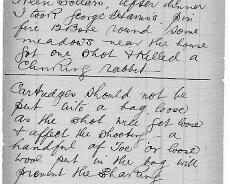 teen Dollars, after dinner
I took George Adams's pin
fire B Bore round some
meadows near the house
got one shot & killed a
climbing rabbit
Cartridges should not be
put into a bag loose
as the shot will get loose
& affect the shooting - a
handful of Toe or loose
wool put in the bag will
prevent the shaking